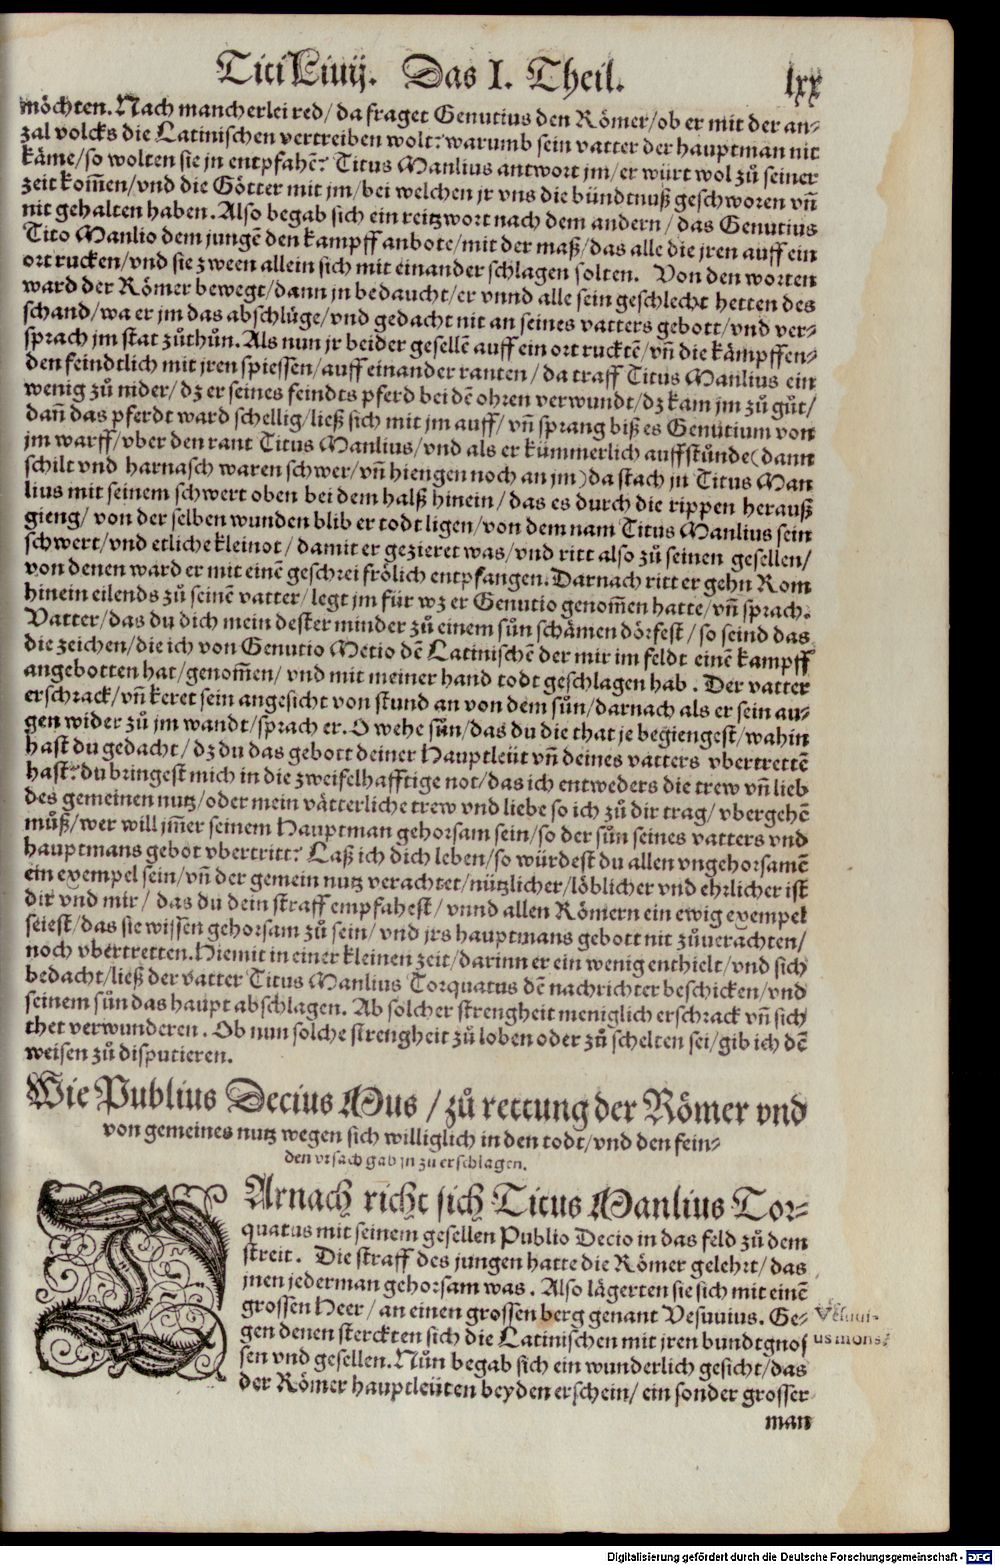 Titi Liuij. Das I. Theil. lxx
möchten. Nach mancherlei red / da fraget Genutius den Römer / ob er mit der an⸗
zal volcks die Latinischen vertreiben wolt: warumb sein vatter der hauptman nit
käme / so wolten sie jn entpfahẽ: Titus Manlius antwort jm / er würt wol zů seiner
zeit kom̃en / vnd die Götter mit jm / bei welchen jr vns die bündtnuß geschworen vñ
nit gehalten haben. Also begab sich ein reitzwort nach dem andern / das Genutius
Tito Manlio dem jungẽ den kampff anbote / mit der maß / das alle die jren auff ein
ort rucken / vnd sie zween allein sich mit einander schlagen solten. Von den worten
ward der Römer bewegt / dann jn bedaucht / er vnnd alle sein geschlecht hetten des
schand / wa er jm das abschlüge / vnd gedacht nit an seines vatters gebott / vnd ver⸗
sprach jm stat zůthůn. Als nun jr beider gesellẽ auff ein ort rucktẽ / vñ die kämpffen⸗
den feindtlich mit jren spiessen / auff einander ranten / da traff Titus Manlius ein
wenig zů nider / dz er seines feindts pferd bei dẽ ohren verwundt / dz kam jm zů gůt /
dañ das pferdt ward schellig / ließ sich mit jm auff / vñ sprang biß es Genutium von
jm warff / vber den rant Titus Manlius / vnd als er kümmerlich auffstůnde (dann
schilt vnd harnasch waren schwer / vñ hiengen noch an jm) da stach jn Titus Man
lius mit seinem schwert oben bei dem halß hinein / das es durch die rippen herauß
gieng / von der selben wunden blib er todt ligen / von dem nam Titus Manlius sein
schwert / vnd etliche kleinot / damit er gezieret was / vnd ritt also zů seinen gesellen /
von denen ward er mit einẽ geschrei frölich entpfangen. Darnach ritt er gehn Rom
hinein eilends zů seinẽ vatter / legt jm für wz er Genutio genom̃en hatte / vñ sprach.
Vatter / das du dich mein dester minder zů einem sůn schämen dörfest / so seind das
die zeichen / die ich von Genutio Metio dẽ Latinischẽ der mir im feldt einẽ kampff
angebotten hat / genom̃en / vnd mit meiner hand todt geschlagen hab. Der vatter
erschrack / vñ keret sein angesicht von stund an von dem sůn / darnach als er sein au⸗
gen wider zů jm wandt / sprach er. O wehe sůn / das du die that je begiengest / wahin
hast du gedacht / dz du das gebott deiner Hauptleüt vñ deines vatters vbertrettẽ
hast: du bringest mich in die zweifelhafftige not / das ich entweders die trew vñ lieb
des gemeinen nutz / oder mein vätterliche trew vnd liebe so ich zů dir trag / vbergehẽ
můß / wer will jm̃er seinem Hauptman gehorsam sein / so der sůn seines vatters vnd
hauptmans gebot vbertritt: Laß ich dich leben / so würdest du allen vngehorsamẽ
ein exempel sein / vñ der gemein nutz verachtet / nützlicher / löblicher vnd ehrlicher ist
dir vnd mir / das du dein straff empfahest / vnnd allen Römern ein ewig exempel
seiest / das sie wissen gehorsam zů sein / vnd jrs hauptmans gebott nit zůuerachten /
noch vbertretten. Hiemit in einer kleinen zeit / darinn er ein wenig enthielt / vnd sich
bedacht / ließ der vatter Titus Manlius Torquatus dẽ nachrichter beschicken / vnd
seinem sůn das haupt abschlagen. Ab solcher strengheit meniglich erschrack vñ sich
thet verwunderen. Ob nun solche strengheit zů loben oder zů schelten sei / gib ich dẽ
weisen zů disputieren.
Wie Publius Decius Mus / zů rettung der Römer vnd
von gemeines nutz wegen sich williglich in den todt / vnd den fein⸗
den vrsach gab jn zu erschlagen.
DArnach richt sich Titus Manlius Tor⸗
quatus mit seinem gesellen Publio Decio in das feld zů dem
streit. Die straff des jungen hatte die Römer gelehrt / das
jnen jederman gehorsam was. Also lägerten sie sich mit einẽ
grossen Heer / an einen grossen berg genant Vesuuius. Ge⸗
gen denen sterckten sich die Latinischen mit jren bundtgnos
sen vnd gesellen. Nůn begab sich ein wunderlich gesicht / das
der Römer hauptleüten beyden erschein / ein sonder grosser
man
Vesuui-
us mons.
Digitalisierung gefördert durch die Deutsche Forschungsgemeinschaft - DFG